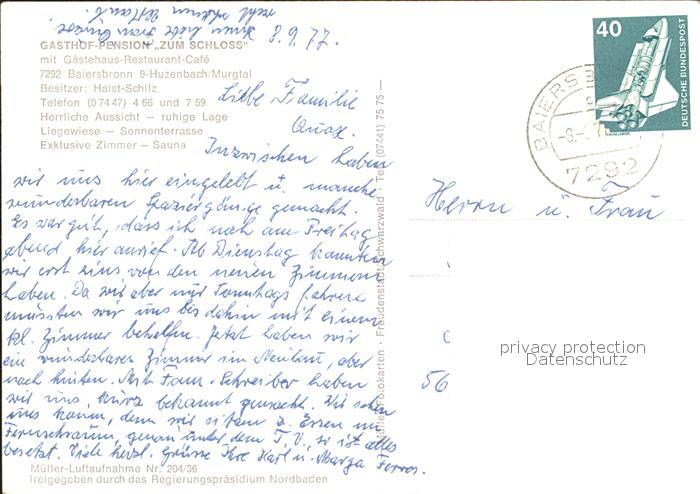 8.9.77.
GASTHOF-PENSION „ZUM SCHLOSS"
mit Gästehaus-Restaurant-Café
7292 Baiersbronn 9-Huzenbach/Murgtal
Besitzer: Haist-Schilz
Telefon (07447) 4 66 und 7 59
Herrliche Aussicht — ruhige Lage
Liegewiese — Sonnenterrasse
Exklusive Zimmer — Sauna
Liebe Familie
Quax.
Inzwischen haben
wir uns hier eingelebt u. manche
wunderbaren Spaziergänge gemacht.
Es war gut, dass ich noch am Freitag
abend hier anrief. Ab Dienstag konnten
wir erst eins von den neuen Zimmern
haben. Da wir aber nur Sonntags fahren
mussten wir uns bis dahin mit einem
kl. Zimmer behelfen. Jetzt haben wir
ein wunderbares Zimmer im Neubau, aber
nach hinten. Mit Fam. Schreiber haben
wir uns kurz bekannt gemacht. Wir sehen
uns kaum, denn wir sitzen z. Essen im
Fernsehraum, genau unter dem T.V., so ist alles
besetzt. Viele herzl. Grüsse Ihre Karl u. Marga Ferres.
Müller-Luftaufnahme Nr. 204/36
freigegeben durch das Regierungspräsidium Nordbaden
Fotokarten · Freudenstadt/Schwarzwald · Tel. (07441) 75 75 —
40
DEUTSCHE BUNDESPOST
BAIERSB
7292
Herrn u. Frau
56
privacy protection
Datenschutz